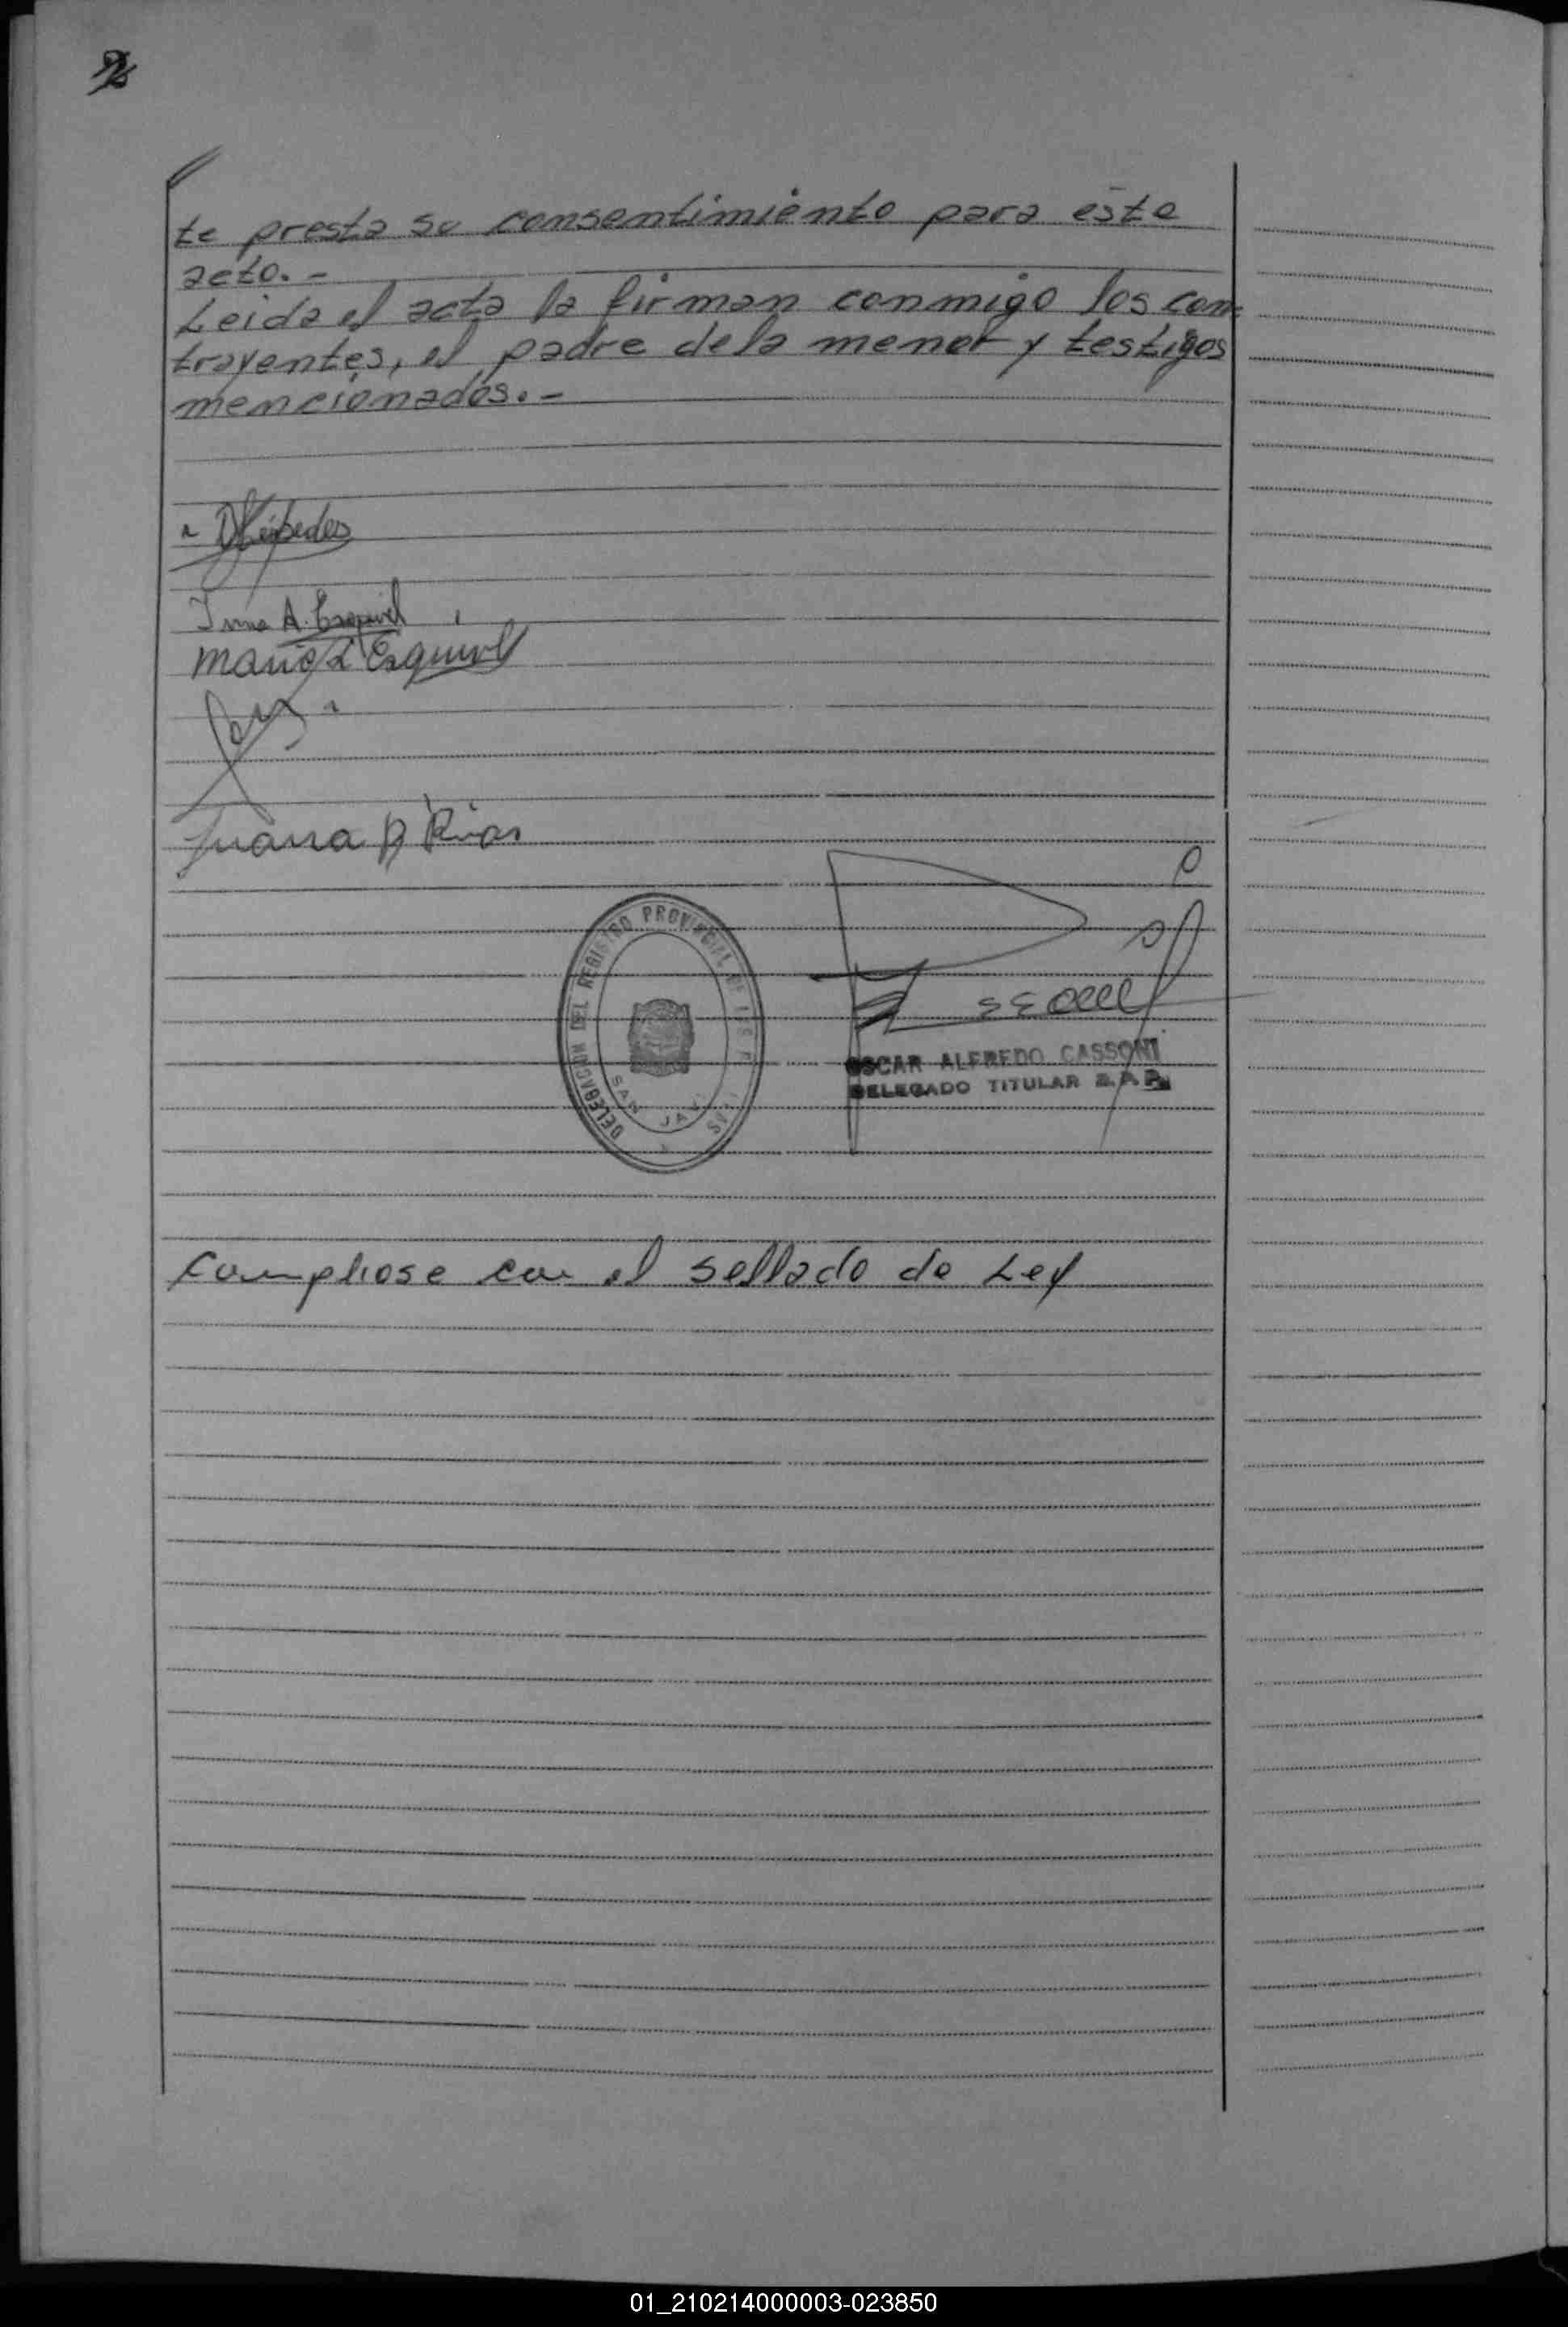 2
te presta su consentimiento para este
acto.-
Leida el acta la firman conmigo los con-
trayentes, el padre de la menor y testigos
mencionados.-
Irma A. Esquivel
Mario L Esquivel
Juana B Rios
DELEGACION DEL REGISTRO PROVINCIAL DE LAS PERSONAS
SAN JAVIER
OSCAR ALFREDO CASSONI
DELEGADO TITULAR R.P.P.
Cumpliose con el sellado de Ley
01_210214000003-023850